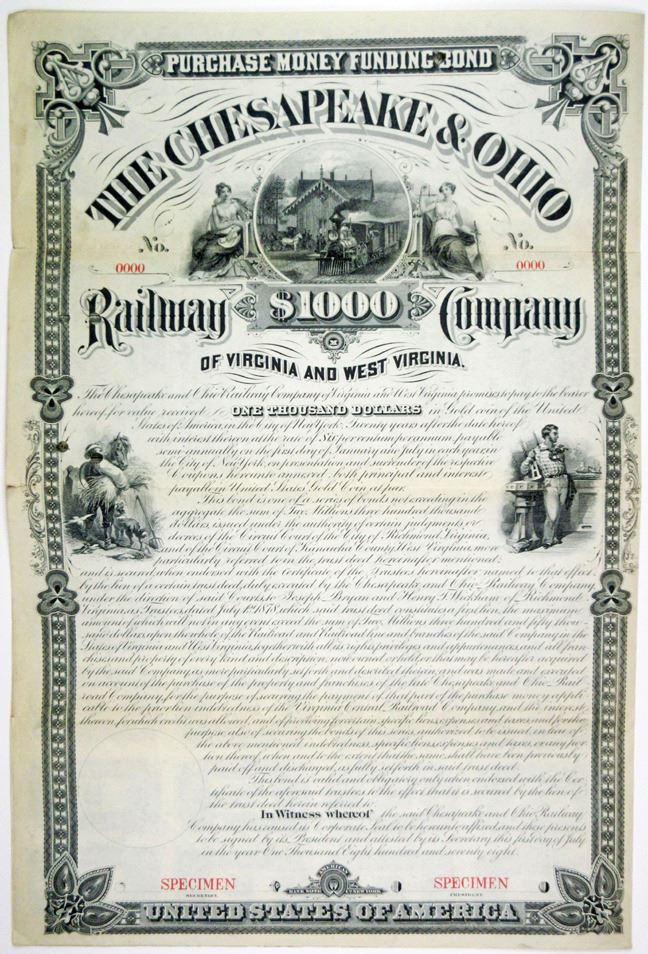 PURCHASE MONEY FUNDING BOND
THE CHESAPEAKE & OHIO
No. No.
0000 0000
Railway $1000 Company
OF VIRGINIA AND WEST VIRGINIA.
The Chesapeake and Ohio Railway Company of Virginia and West Virginia promises to pay to the bearer
hereof, for value received ONE THOUSAND DOLLARS in Gold coin of the United
States of America, in the City of New York, Twenty years after the date hereof
with interest thereon at the rate of Six per centum per annum, payable
semi-annually on the first day of January and July in each year in
the City of New York, on presentation and surrender of the respective
Coupons hereunto annexed, both principal and interest
payable in United States Gold Coin at par.
This bond is one of a series of bonds not exceeding in the
aggregate the sum of Two Millions three hundred thousand
dollars, issued under the authority of certain judgments or
decrees of the Circuit Court of the City of Richmond Virginia,
and of the Circuit Court of Kanawha County West Virginia, more
particularly referred to in the trust deed hereinafter mentioned
and is secured when endorsed with the Certificate of the Trustees hereinafter named to that effect
by the lien of a certain trust deed, duly executed by the Chesapeake and Ohio Railway Company
under the direction of said Courts, to Joseph Bryan and Henry T. Wickham of Richmond
Virginia, as Trustees, dated July 1st 1878, which said trust deed constitutes a first lien, the maximum
amount of which will not in any event exceed the sum of Two Millions three hundred and fifty thou-
sand dollars, upon the whole of the Railroad and Railroad line and branches of the said Company in the
States of Virginia and West Virginia, together with all its rights, privileges and appurtenances, and all fran-
chises and property of every kind and description, now owned or held, or that may be hereafter acquired
by the said Company, as more particularly set forth and described therein, and was made and executed
on account of the purchase of the property and franchises of the late Chesapeake and Ohio Rail-
road Company, for the purpose of securing the payment of that part of the purchase money appli-
cable to the prior lien indebtedness of the Virginia Central Railroad Company, and the interest
thereon, for which credit was allowed, and of providing for certain specific liens, expenses, and taxes, and for the
purpose also of securing the bonds of this series, authorized to be issued, in lieu of
the above mentioned indebtedness, specific liens, expenses and taxes, or any por-
tion thereof, when and to the extent that the same shall have been previously
paid off and discharged, as fully set forth in said trust deed.
This bond is valid and obligatory only when endorsed with the Cer-
tificate of the aforesaid trustees to the effect that it is secured by the lien of
the trust deed herein referred to.
In Witness whereof the said Chesapeake and Ohio Railway
Company has caused its Corporate Seal to be hereunto affixed, and these presents
to be signed by its President and attested by its Secretary this first day of July
in the year One Thousand Eight hundred and seventy eight.
SPECIMEN SPECIMEN
SECRETARY. PRESIDENT.
AMERICAN
BANK NOTE CO. NEW YORK
UNITED STATES OF AMERICA